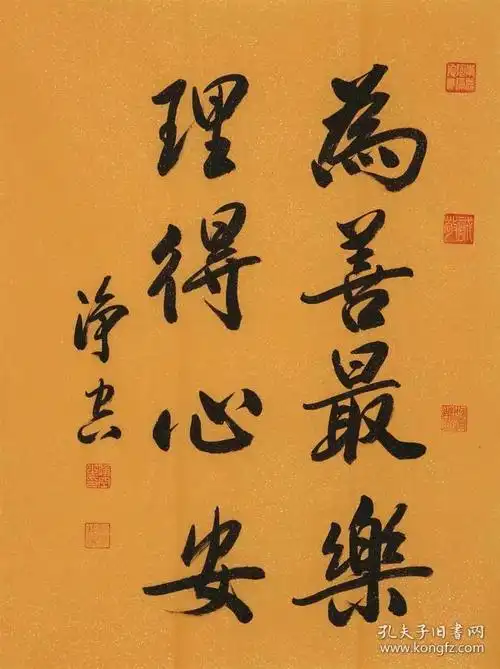 為善最樂
理得心安
淨空
孔夫子旧书网
www.kongfz.com